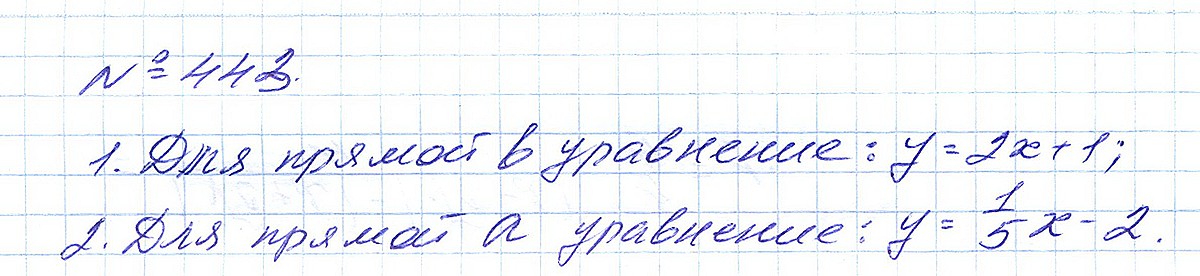 № 443.
1. Для прямой b уравнение: y = 2x + 1;
2. Для прямой a уравнение: y = 1/5 x - 2.